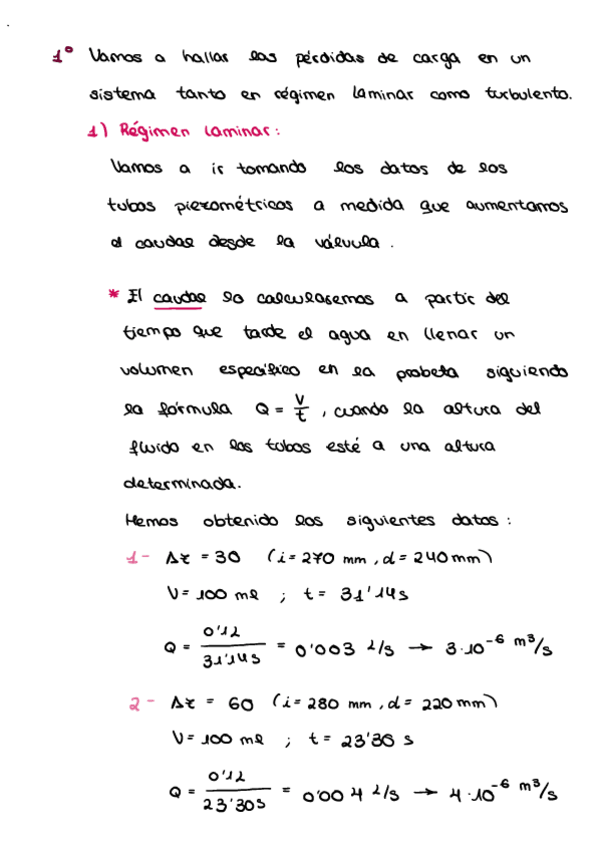 1° Vamos a hallar las pérdidas de carga en un
sistema tanto en régimen laminar como turbulento.
1) Régimen laminar:
Vamos a ir tomando los datos de los
tubos piezométricos a medida que aumentamos
el caudal desde la válvula.
* El caudal lo calcularemos a partir del
tiempo que tarde el agua en llenar un
volumen específico en la probeta siguiendo
la fórmula Q = V/t, cuando la altura del
fluido en los tubos esté a una altura
determinada.
Hemos obtenido los siguientes datos:
1- Δz = 30 (i = 270 mm, d = 240 mm)
V = 100 ml ; t = 31'14s
Q = 0'1L / 31'14s = 0'003 L/s → 3·10⁻⁶ m³/s
2- Δz = 60 (i = 280 mm, d = 220 mm)
V = 100 ml ; t = 23'30 s
Q = 0'1L / 23'30s = 0'004 L/s → 4·10⁻⁶ m³/s